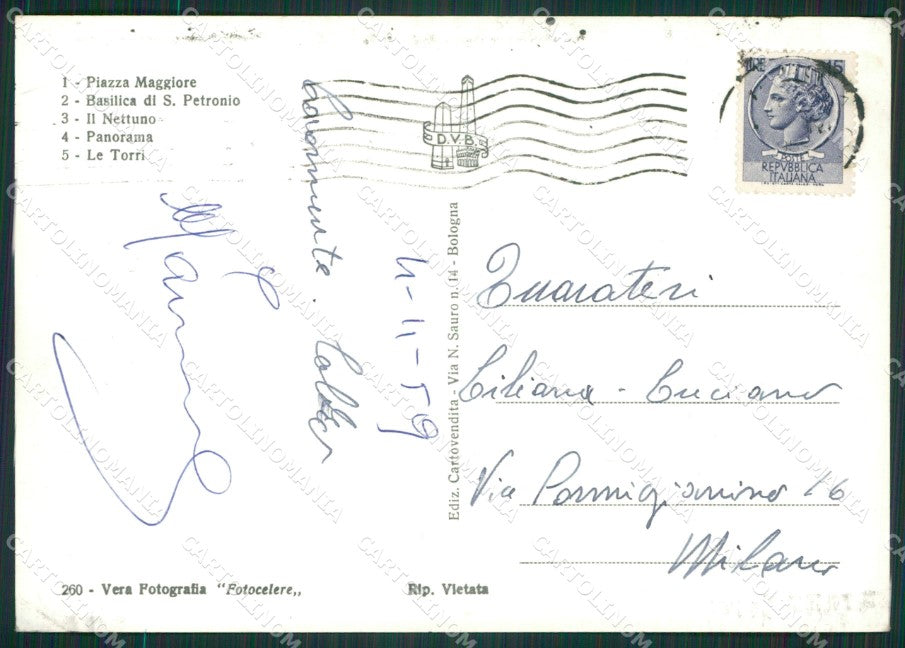 1 - Piazza Maggiore
2 - Basilica di S. Petronio
3 - Il Nettuno
4 - Panorama
5 - Le Torri
D.V.B.
LIRE 15
POSTE
REPVBBLICA
ITALIANA
4-11-59
Ediz. Cartovendita - Via N. Sauro n. 14 - Bologna
Liliana - Luciano
Via Parmigianino 16
Milano
260 - Vera Fotografia "Fotocelere„
Rip. Vietata
CARTOLINOMANIA